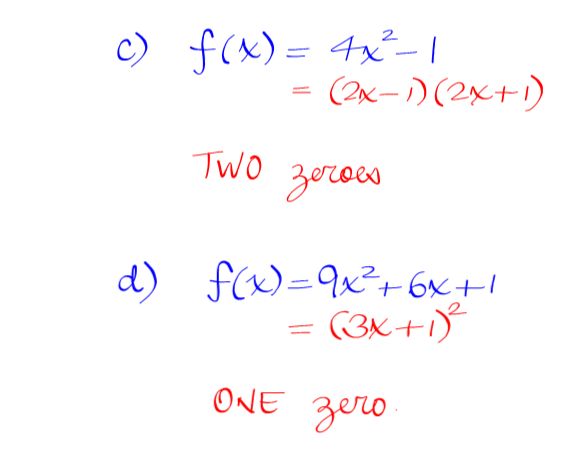 c) f(x) = 4x²-1
= (2x-1)(2x+1)
TWO zeroes
d) f(x)=9x²+6x+1
= (3x+1)²
ONE zero.